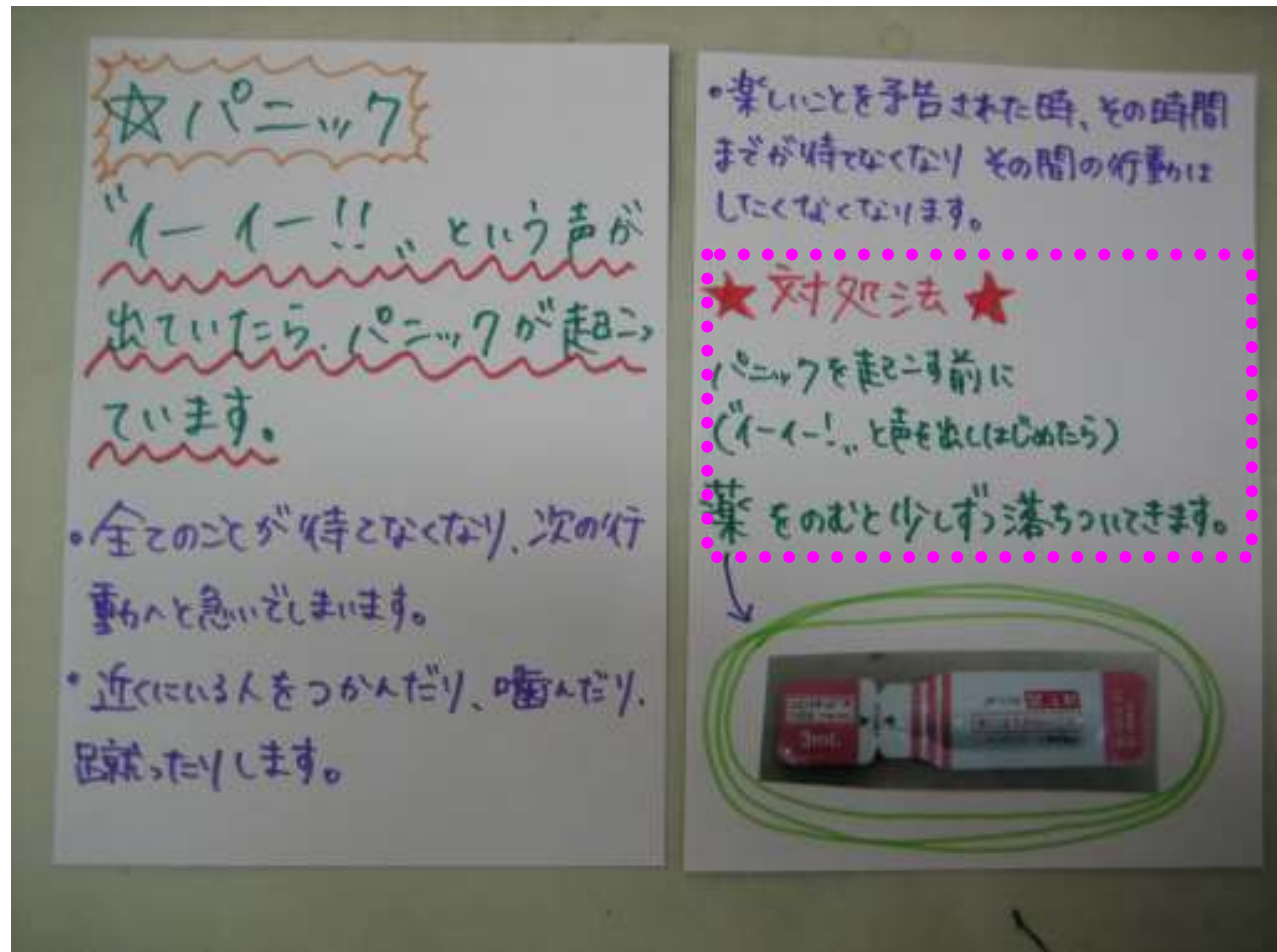 ☆パニック
"イーイー!!"という声が
出ていたら、パニックが起こっ
ています。
・全てのことが待てなくなり、次の行
動へと急いでしまいます。
・近くにいる人をつかんだり、噛んだり、
蹴ったりします。
・楽しいことを予告された時、その時間
までが待てなくなり その間の行動は
したくなくなります。
★対処法★
パニックを起こす前に
("イーイー!"と声を出しはじめたら)
薬をのむと少しずつ落ちついてきます。
3mL